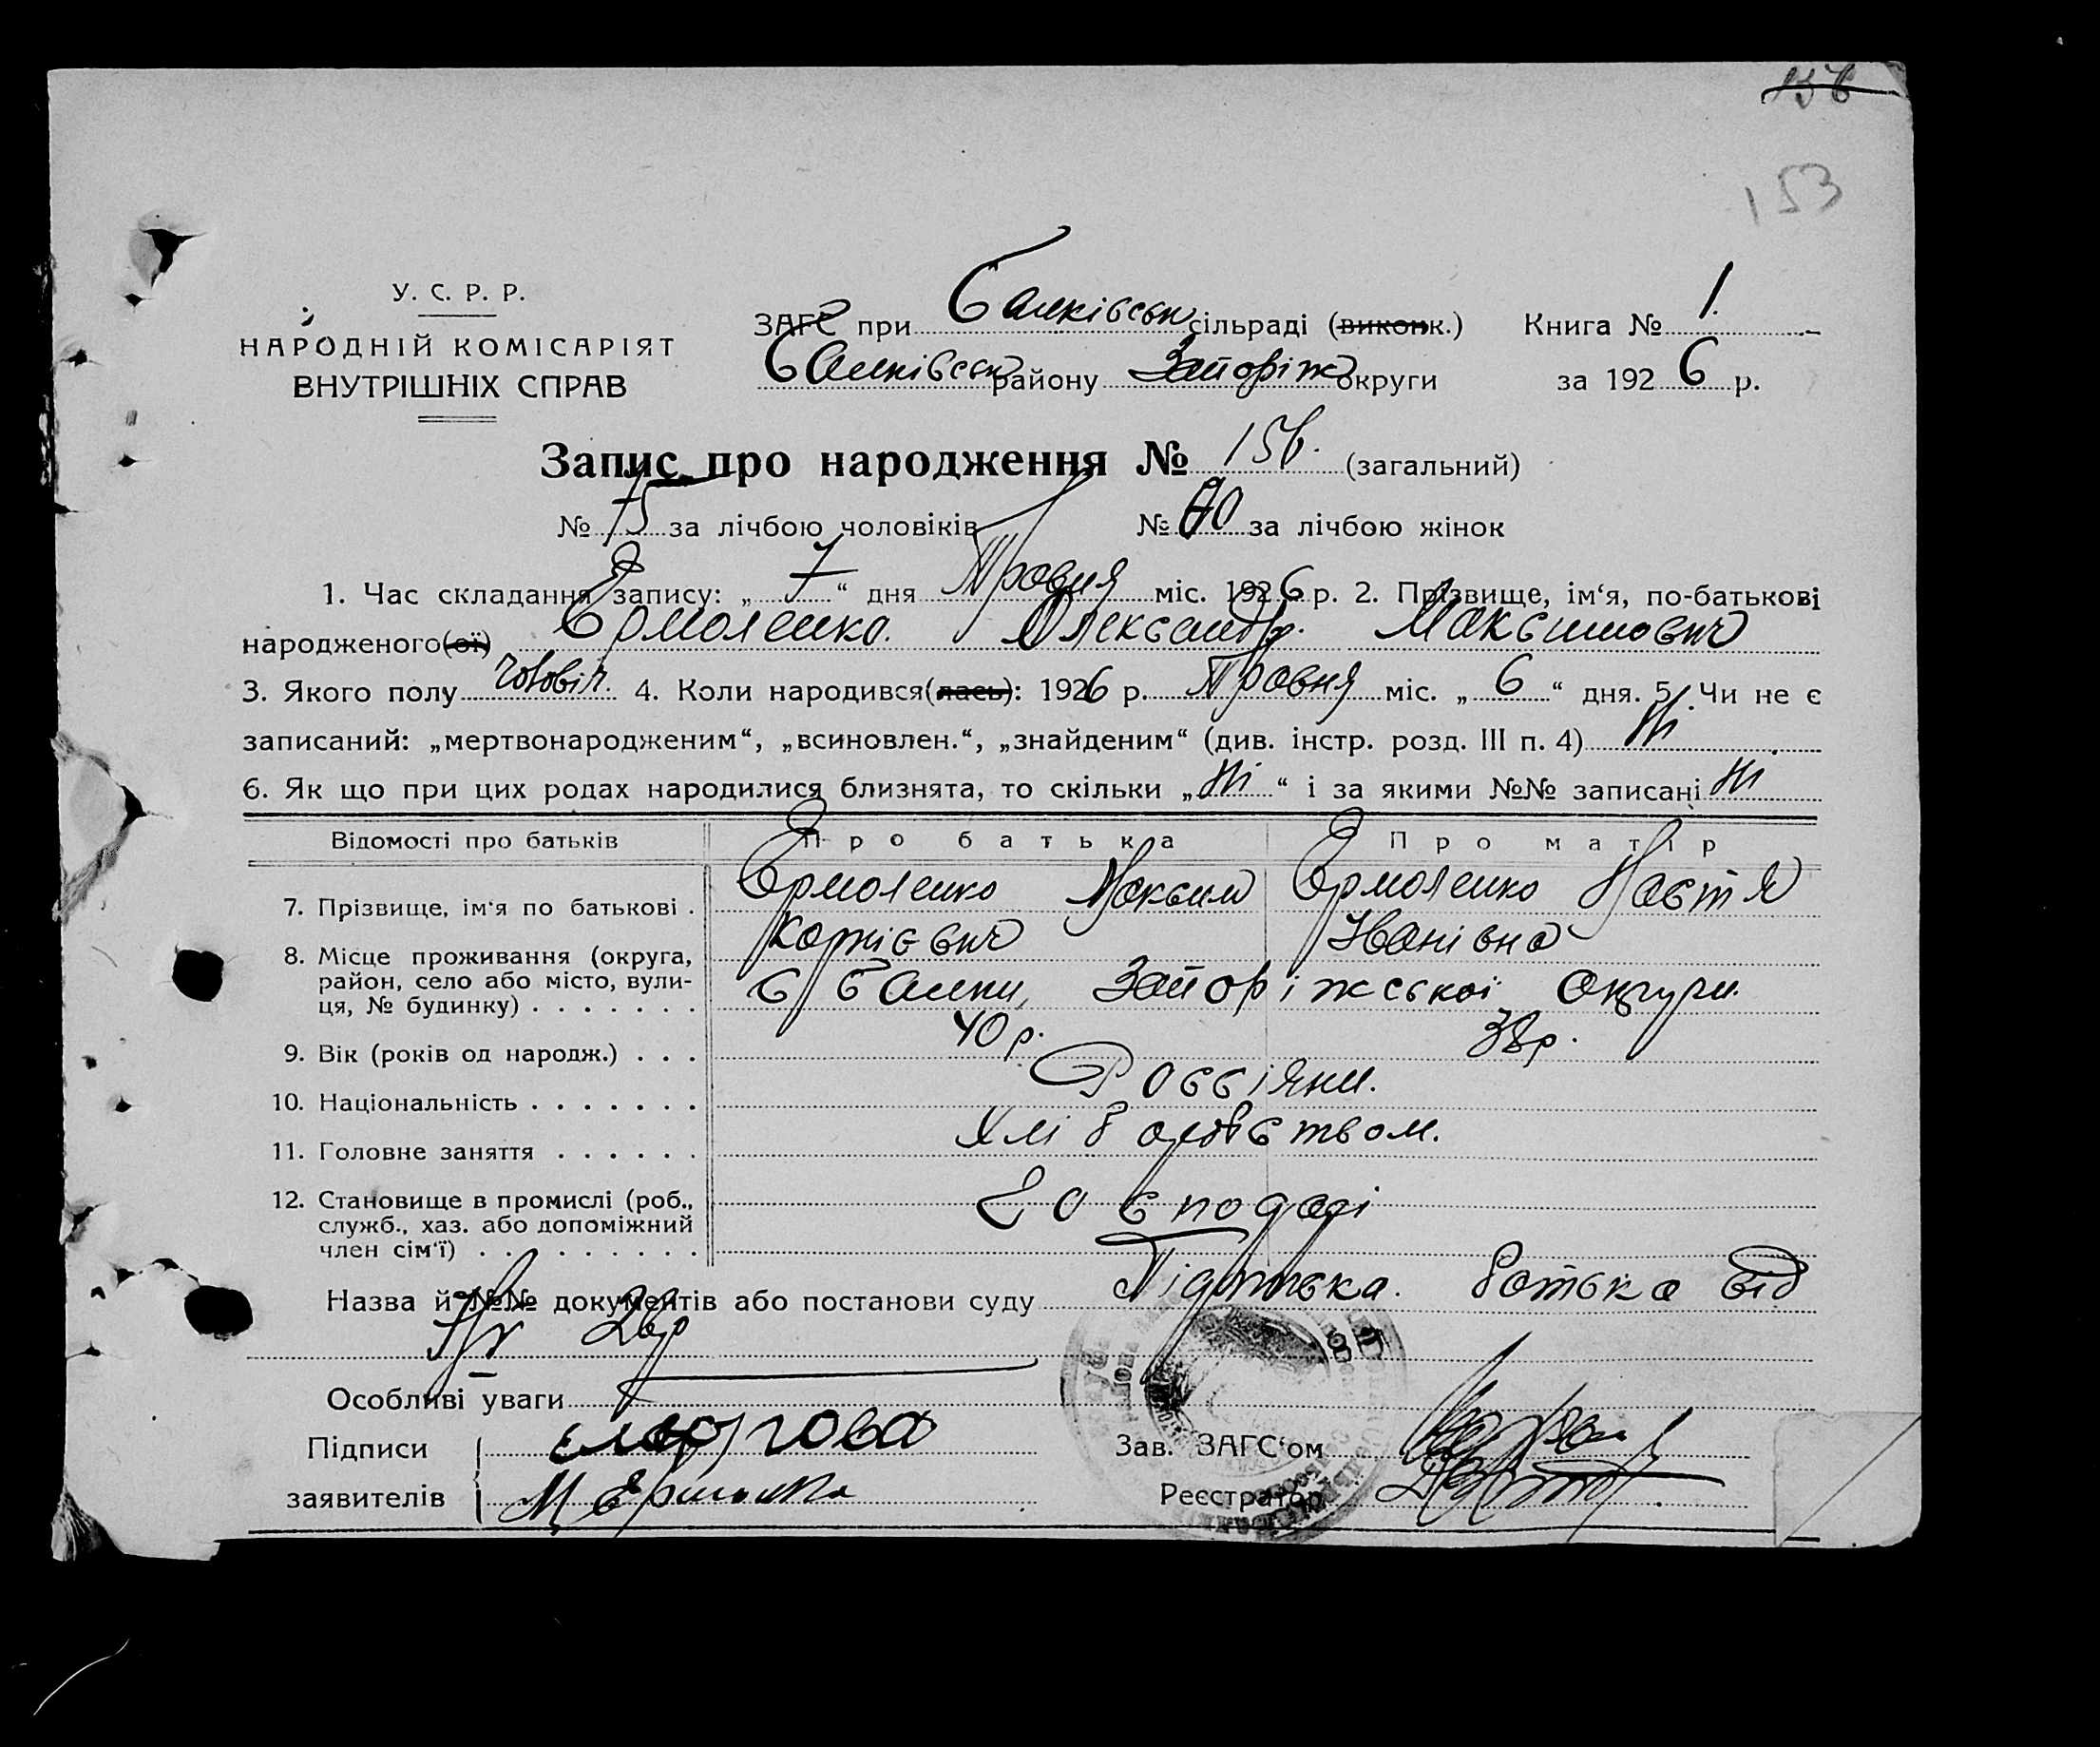 156
153
У. С. Р. Р.
НАРОДНІЙ КОМІСАРІЯТ
ВНУТРІШНІХ СПРАВ
ЗАГС при Балківськ сільраді (виконк.) Книга № 1.
Балківськ району Запоріж округи за 1926 р.
Запис про народження № 156. (загальний)
№ 75 за лічбою чоловіків № за лічбою жінок
1. Час складання запису: „ 7 “ дня Травня міс. 1926 р. 2. Прізвище, ім‘я, по-батькові
народженого(ої) Ермоленко. Олександр. Максимович
3. Якого полу чоловіч. 4. Коли народився(лась): 1926 р. Травня міс. „ 6 “ дня. 5. Чи не є
записаний: „мертвонародженим“, „всиновлен.“, „знайденим“ (див. інстр. розд. III п. 4) Ні
6. Як що при цих родах народилися близнята, то скільки „ Ні “ і за якими №№ записані Ні
Відомості про батьків Про батька Про матір
7. Прізвище, ім‘я по батькові . Ермоленко Максим Ермоленко Настя
Корнієвич Іванівна
8. Місце проживання (округа,
район, село або місто, вули-
ця, № будинку) . . . . . . . с Балки, Запоріжської округи.
9. Вік (років од народж.) . . . 40 р. 38 р.
10. Національність . . . . . . . Россіяни.
11. Головне заняття . . . . . . Хліборобством.
12. Становище в промислі (роб.,
служб., хаз. або допоміжний
член сім‘ї) . . . . . . . . . Господарі
Назва й №№ документів або постанови суду Підписька. батька від
7/V 26р
Особливі уваги
Підписи
заявителів М Ермоленко
Зав. ЗАГС‘ом
Реєстратор